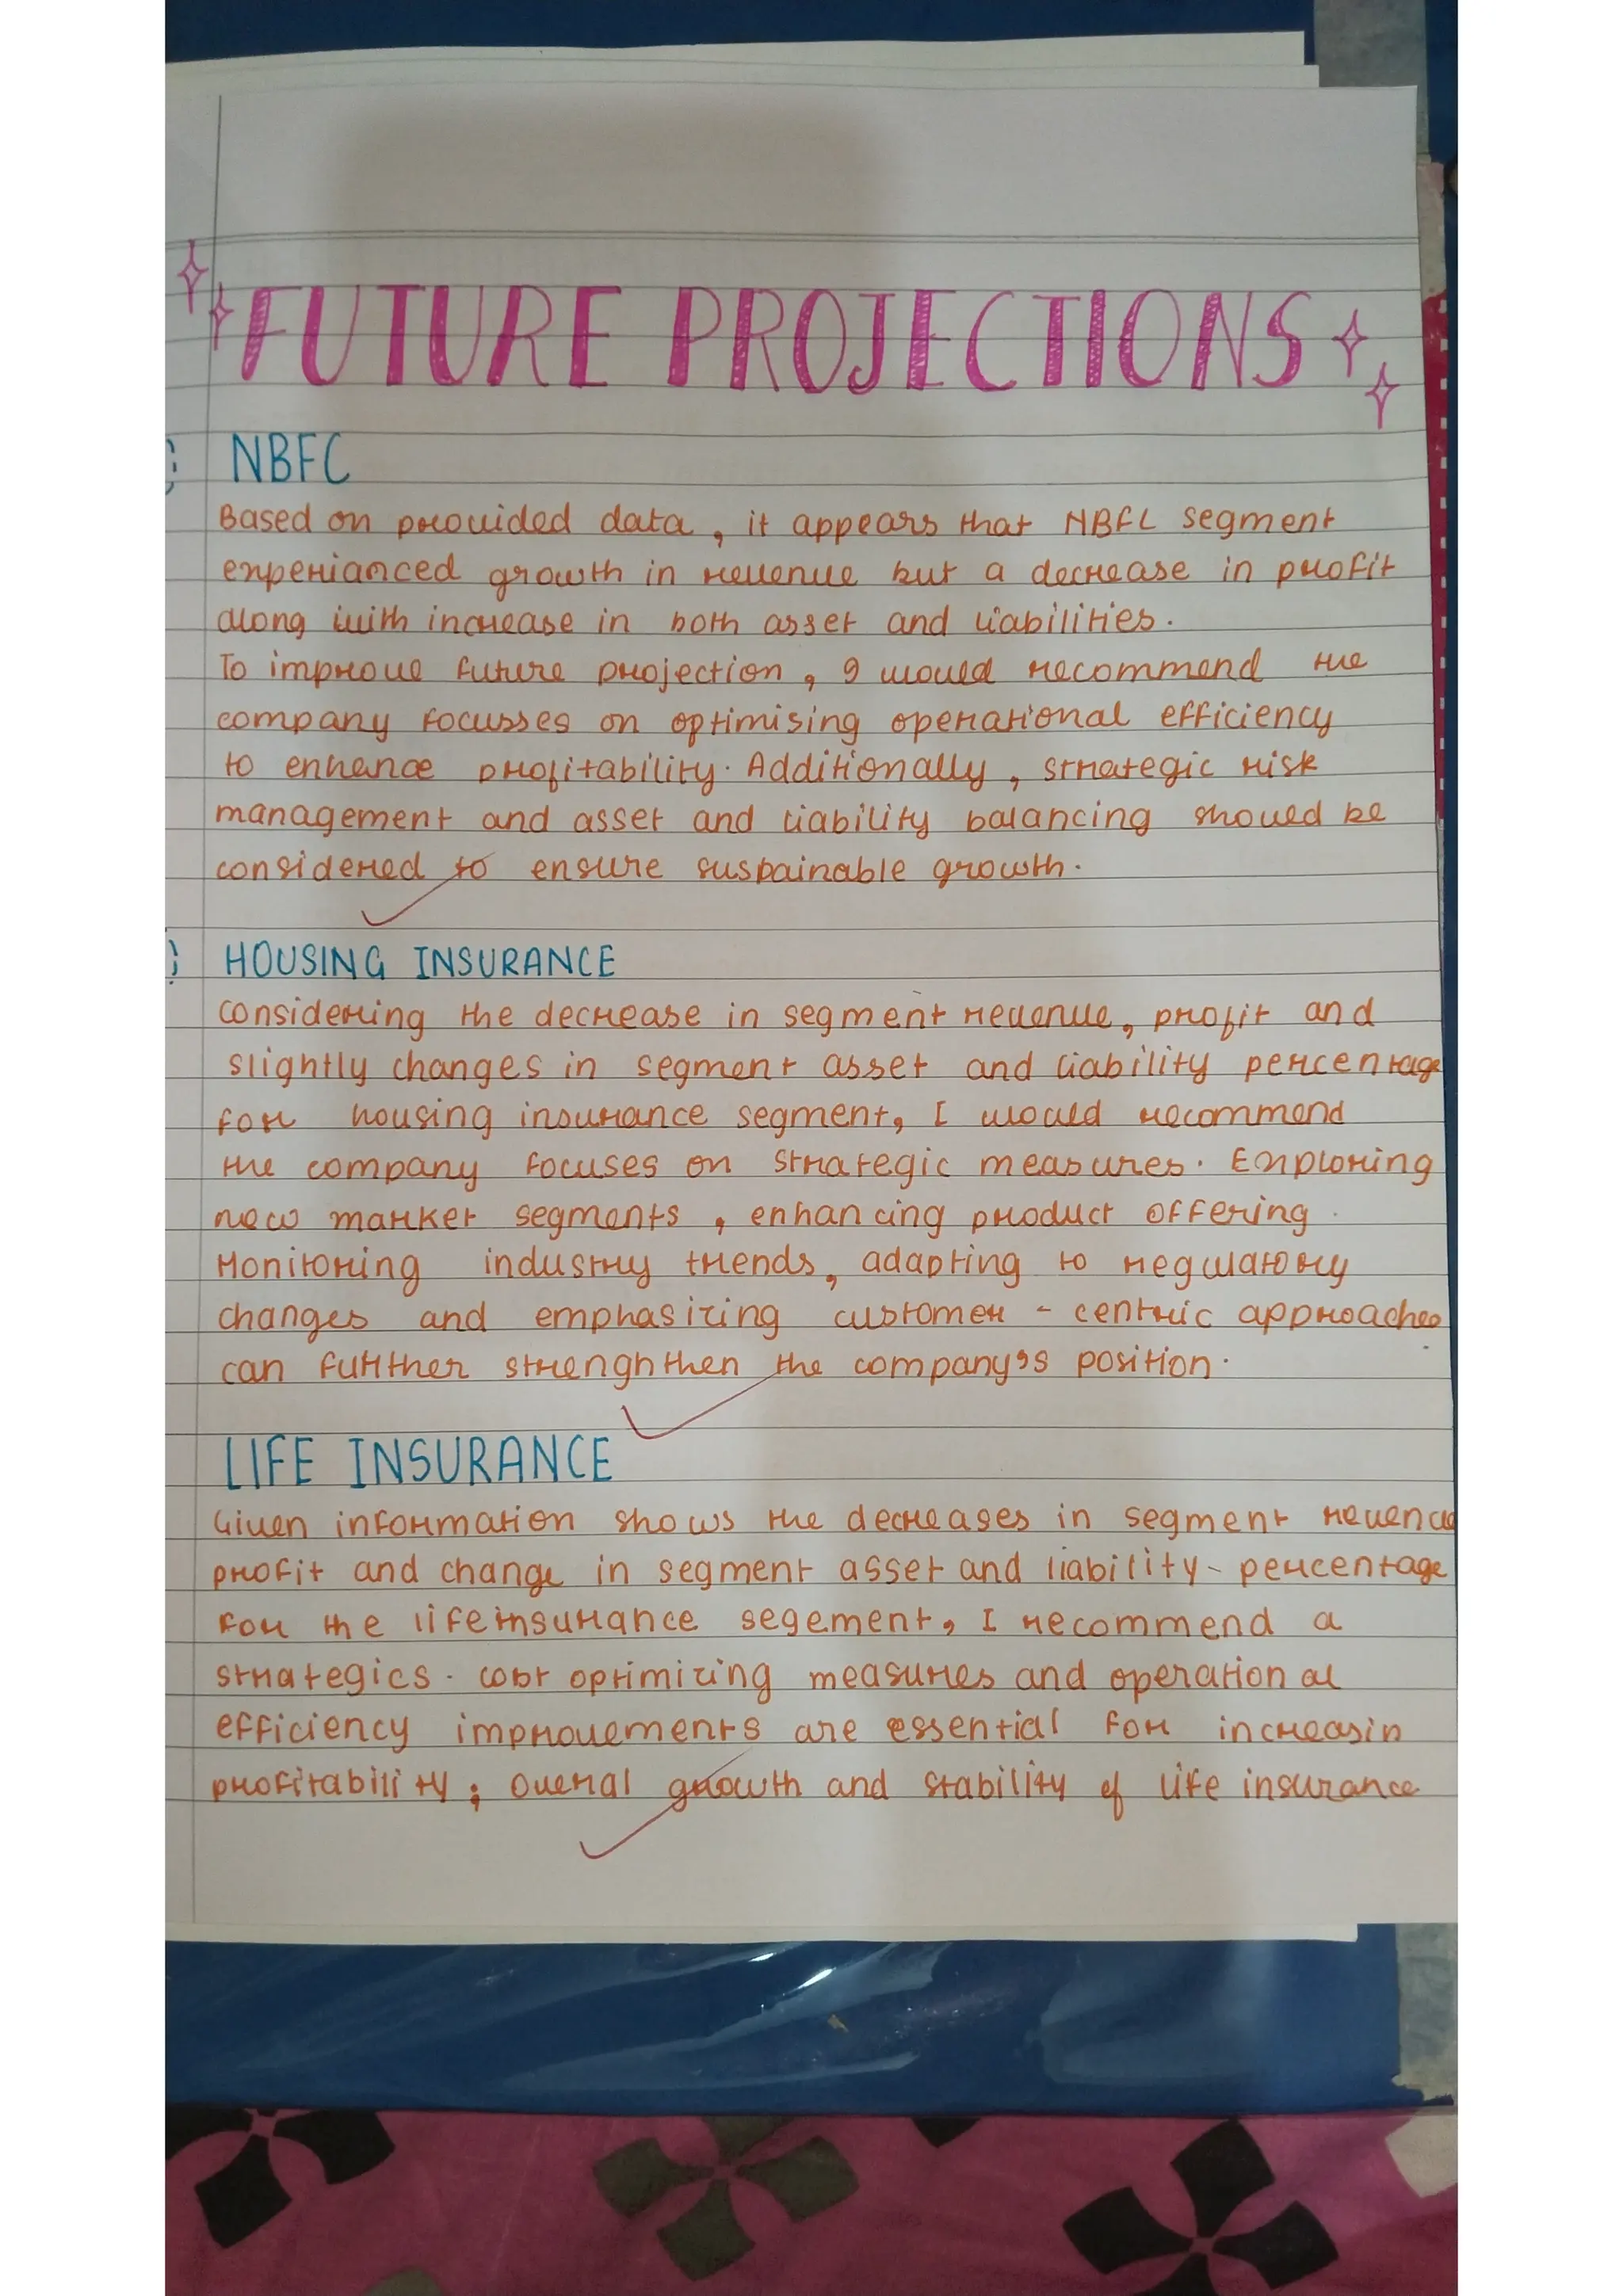 FUTURE PROJECTIONS
NBFC
Based on provided data, it appears that NBFC segment
experianced growth in revenue but a decrease in profit
along with increase in both asset and liabilities.
To improve future projection, I would recommend the
company focusses on optimising operational efficiency
to enhance profitability. Additionally, strategic risk
management and asset and liability balancing should be
considered to ensure suspainable growth.
HOUSING INSURANCE
Considering the decrease in segment revenue, profit and
slightly changes in segment asset and liability percentage
for housing insurance segment, I would recommend
the company focuses on strategic measures. Exploring
new market segments, enhancing product offering.
Monitoring industry trends, adapting to regulatory
changes and emphasizing customer - centric approaches
can further strenghthen the company's position.
LIFE INSURANCE
Given information shows the decreases in segment revenue
profit and change in segment asset and liability - percentage
for the life insurance segement, I recommend a
strategics. cost optimizing measures and operational
efficiency improvements are essential for increasin
profitability; overal growth and stability of life insurance